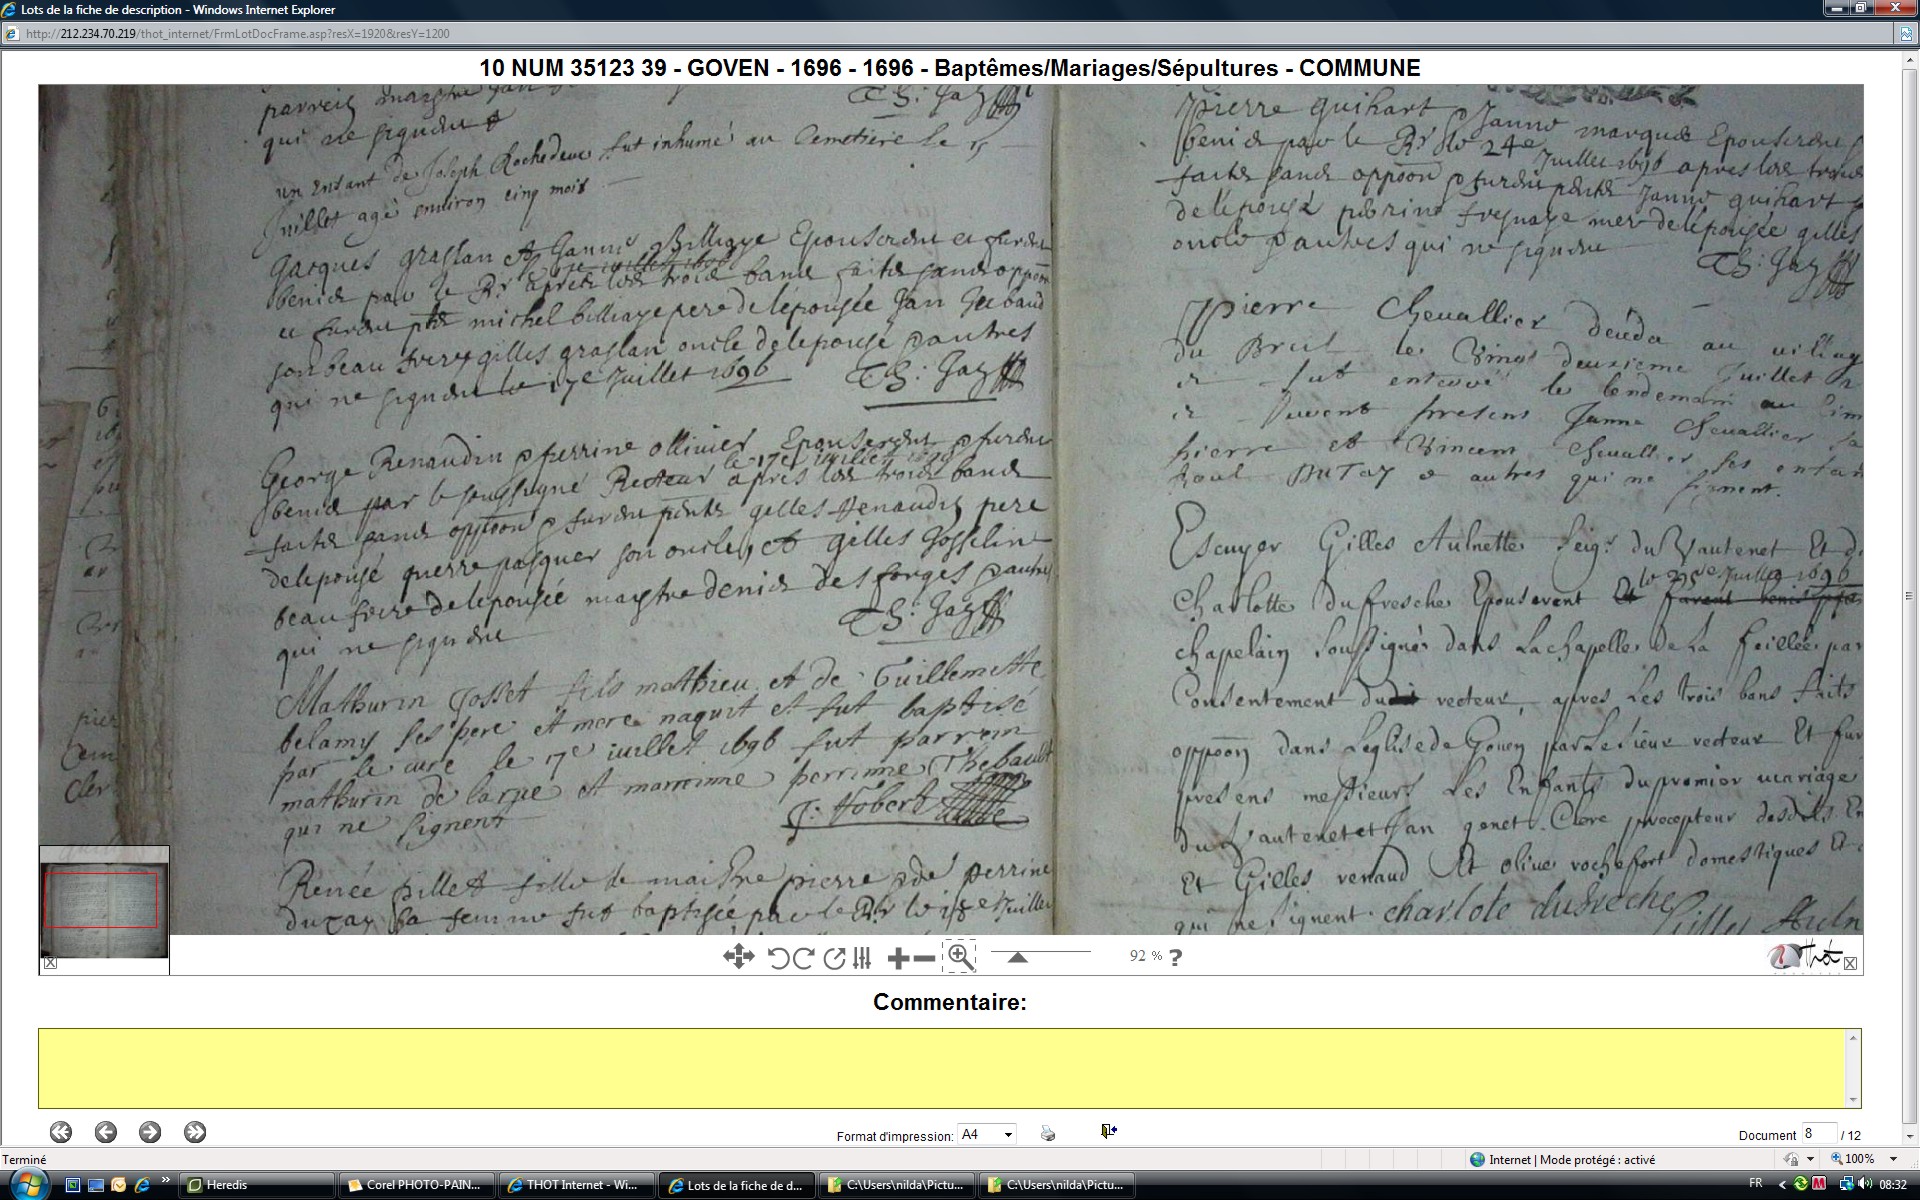 Lots de la fiche de description - Windows Internet Explorer
http://212.234.70.219/thot_internet/FrmLotDocFrame.asp?resX=1920&resY=1200
10 NUM 35123 39 - GOVEN - 1696 - 1696 - Baptêmes/Mariages/Sépultures - COMMUNE
qui ne signent
un Enfant de Joseph Rochedeux fut inhumé au Cemetiere le 15
Juillet agé environ cinq mois
Jacques graslan et Janne Billiaye Epouserent et furent
benis par le Rr apres les trois bans faites sans oppoōn
et furent michel billiaye pere de lepousée Jan
son beau frere gilles graslan oncle de lepousé autres
qui ne signent le 17e Juillet 1696
George Renaudin perrine ollivier Epouserent furent
le 17e juillet 1696
benis par le soussigné Recteur apres les trois bans
faites sans oppoōn furent gilles Renaudin pere
de lepousé pierre pasquer son oncle, et gilles Josselin
beau frere de lepousée maistre denis des forges autres
qui ne signent
Mathurin Josset fils mathieu et de Guillemette
belamy ses pere et mere naquit et fut baptisé
par le curé le 17e iuillet 1696 fut parrain
mathurin de larue et marrinne perrinne Thebault
qui ne signent
J: Hobert
Renée pillet fille de maistre pierre de perrine
sa femme fut baptisée par le Rr le 18e Juillet
pierre guihart Janne marquee Epouserent
benis par le Rr le 24e Juillet 1696 apres les trois
faites sans oppoōn furent Janne guihart
de lepousé perrine fresnaye mer de lepousée gilles
oncle autres qui ne signent
Pierre Chevallier décéda au villag
du Breil le Vingt deuxieme Juillet
et fut enterré le lendemain au Cim
et furent presens Janne Chevallier sa
pierre et Vincent Chevallier ses enfan
Raoul et autres qui ne signent.
Escuyer Gilles Aulnette Seigr du Vautenet Et d
le Juillet 1696
Charlotte dufresche Epouserent Et furent
chapelain soussigné dans La chapelle de La feillée par
Consentement du recteur, apres Les trois bans faits
oppoōn dans Leglise de Goven par Le sieur recteur Et fur
presens messieurs Les Enfants du premier mariage
du Vautenet et Jan genet. Clerc precepteur desdits En
Et Gilles renaud Et olive rochefort domestiques Et
qui ne signent. charlote dufreche Gilles Auln
92 % ?
Thot
Commentaire:
Format d'impression: A4
Document 8 / 12
Terminé
Internet | Mode protégé : activé
100%
Heredis
Corel PHOTO-PAIN...
THOT Internet - Wi...
Lots de la fiche de d...
C:\Users\nilda\Pictu...
C:\Users\nilda\Pictu...
FR
08:32